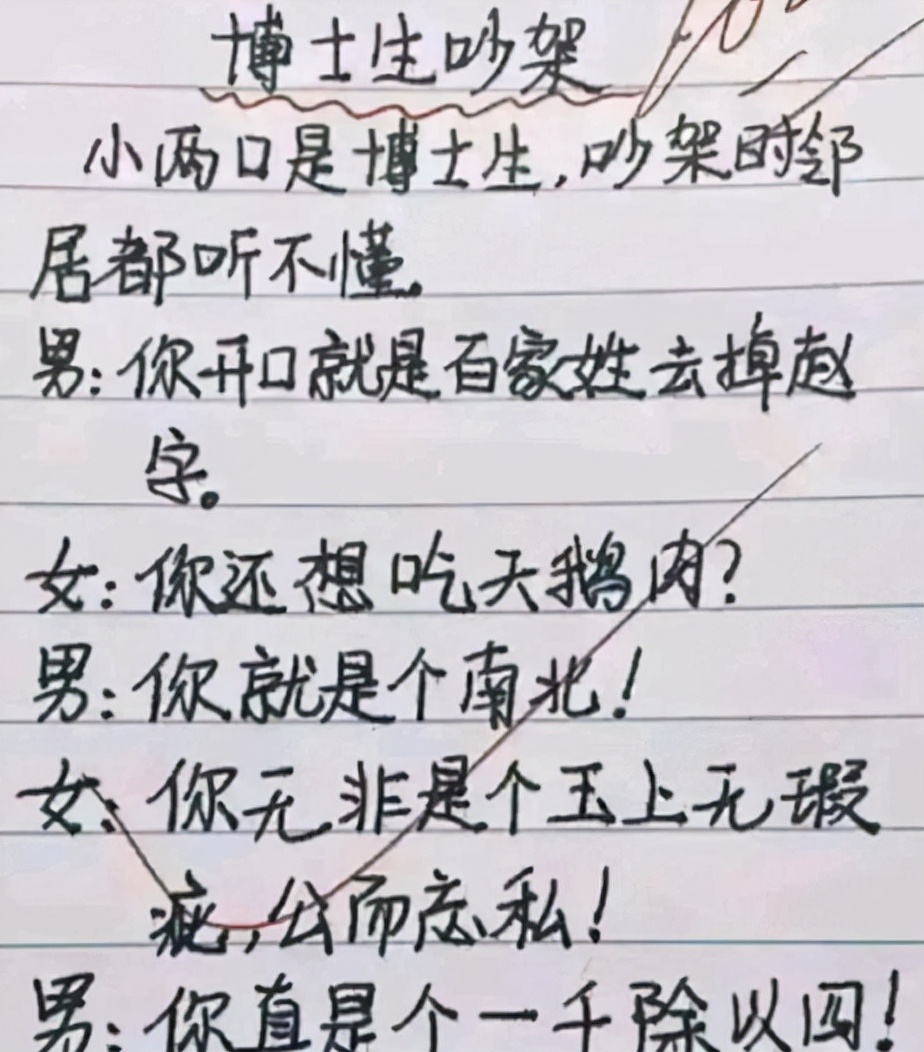 博士生吵架
小两口是博士生,吵架时邻
居都听不懂。
男:你开口就是百家姓去掉赵
字。
女:你还想吃天鹅肉?
男:你就是个南北!
女:你无非是个玉上无瑕
疵,公而忘私!
男:你直是个一千除以四!